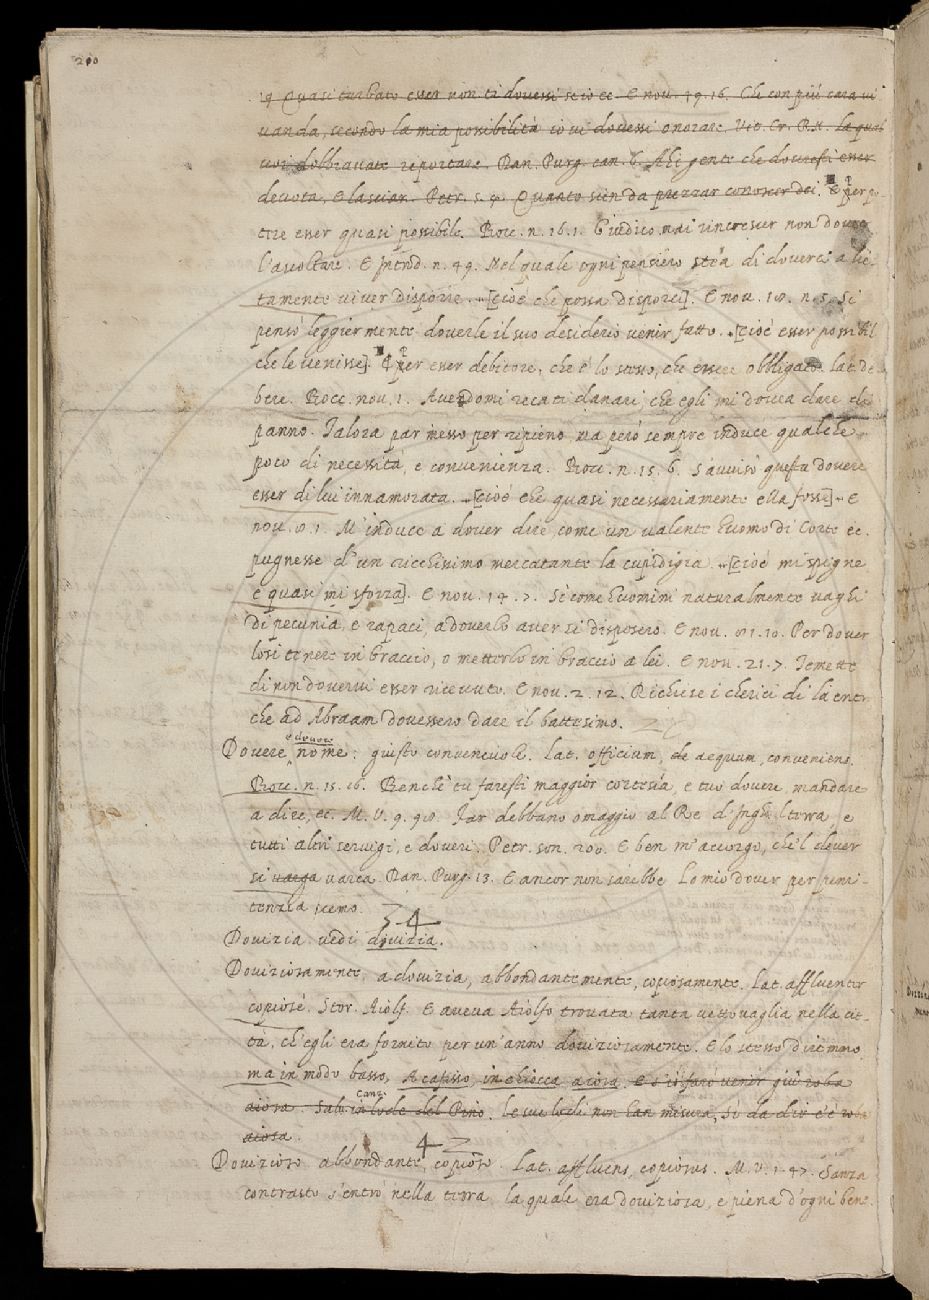 200
19 Quasi turbato esser non ti dovessi se io ec. E nov. 49. 16. Che con più cara vi
vanda, secondo la mia possibilità io vi dovessi onorare. Vit. Cr. R.N. la qual
voi dobbiavate reportare. Dan. Purg. can. 6. Ahi gente che dovresti esser
devota, E lasciar. Petr. s. 4. Quanto sien da prezzar conoscer dei. E per po
tre esser quasi possibile. Bocc. n. 16. 1. Giudico mai rincrescer non dover
l'ascoltare. E Introd. n. 49. Nel quale ogni pensiero stea di doverci a lie-
tamente viver disporre. [cioè che possa disporci]. E nov. 18. n. 5. Si
pensò leggiermente doverle il suo desiderio venir fatto. [cioè esser possibil
che le venisse]. E per esser debitore, che è lo stesso, che essere obbligato. Lat. de
bere. Bocc. nov. 1. Avendomi recati danari, che egli mi dovea dare di
panno. Talora par messo per ripieno, ma però sempre induce qualche
poco di necessità, e convenienza. Bocc. n. 15. 6. S'avvisò questa dovere
esser di lui innamorata. [cioè che quasi necessariamente ella fosse]. E
nov. 8. 1. M'induce a dover dire, come un valente huomo di Corte ec.
pugnesse d'un ricchissimo mercatante la cupidigia. [cioè mi spigne
e quasi mi sforza]. E nov. 14. 7. Sì come huomini naturalmente vaghi
di pecunia, e rapaci, a doverlo aver si disposero. E nov. 81. 10. Per dover
losi tenere in braccio, o metterlo in braccio a lei. E nov. 21. 7. Temette
di non dovervi esser ricevuto. E nov. 2. 12. Richiese i cherici di là entr
che ad Abraam dovessero dare il battesimo.
Dovere nome: giusto convenevole. Lat. officium, aequum, conveniens.
Bocc. n. 15. 16. Benchè tu faresti maggior cortesia, e tuo dovere, mandare
a dire, ec. M. V. 9. 98. Far debbano omaggio al Re d'Inghilterra, e
tutti altri servigi, e doveri. Petr. son. 200. E ben m'accorgo, che'l dever
si varga varca. Dan. Purg. 13. E ancor non sarebbe Lo mio dover per peni-
tenzia scemo.
Dovizia vedi divizia.
Doviziosamente, a dovizia, abbondantemente, copiosamente. Lat. affluenter
copiosè. Stor. Aiolf. E aveva Aiolfo trovata tanta vettovaglia nella cit-
tà, ch'egli era fornito per un'anno doviziosamente. E lo stesso diremmo
ma in modo basso, A cafisso, in chiocca a iosa. E s'io farò venir giù roba
aiosa. Salv. in lode del Pino. Le sue lodi non han misura, Sì da dir c'è roba
aiosa. canz.
Dovizioso abbondante, copioso. Lat. affluens, copiosus. M. V. 1. 47. Sanza
contrasto s'entrò nella terra, la quale era doviziosa, e piena d'ogni bene.